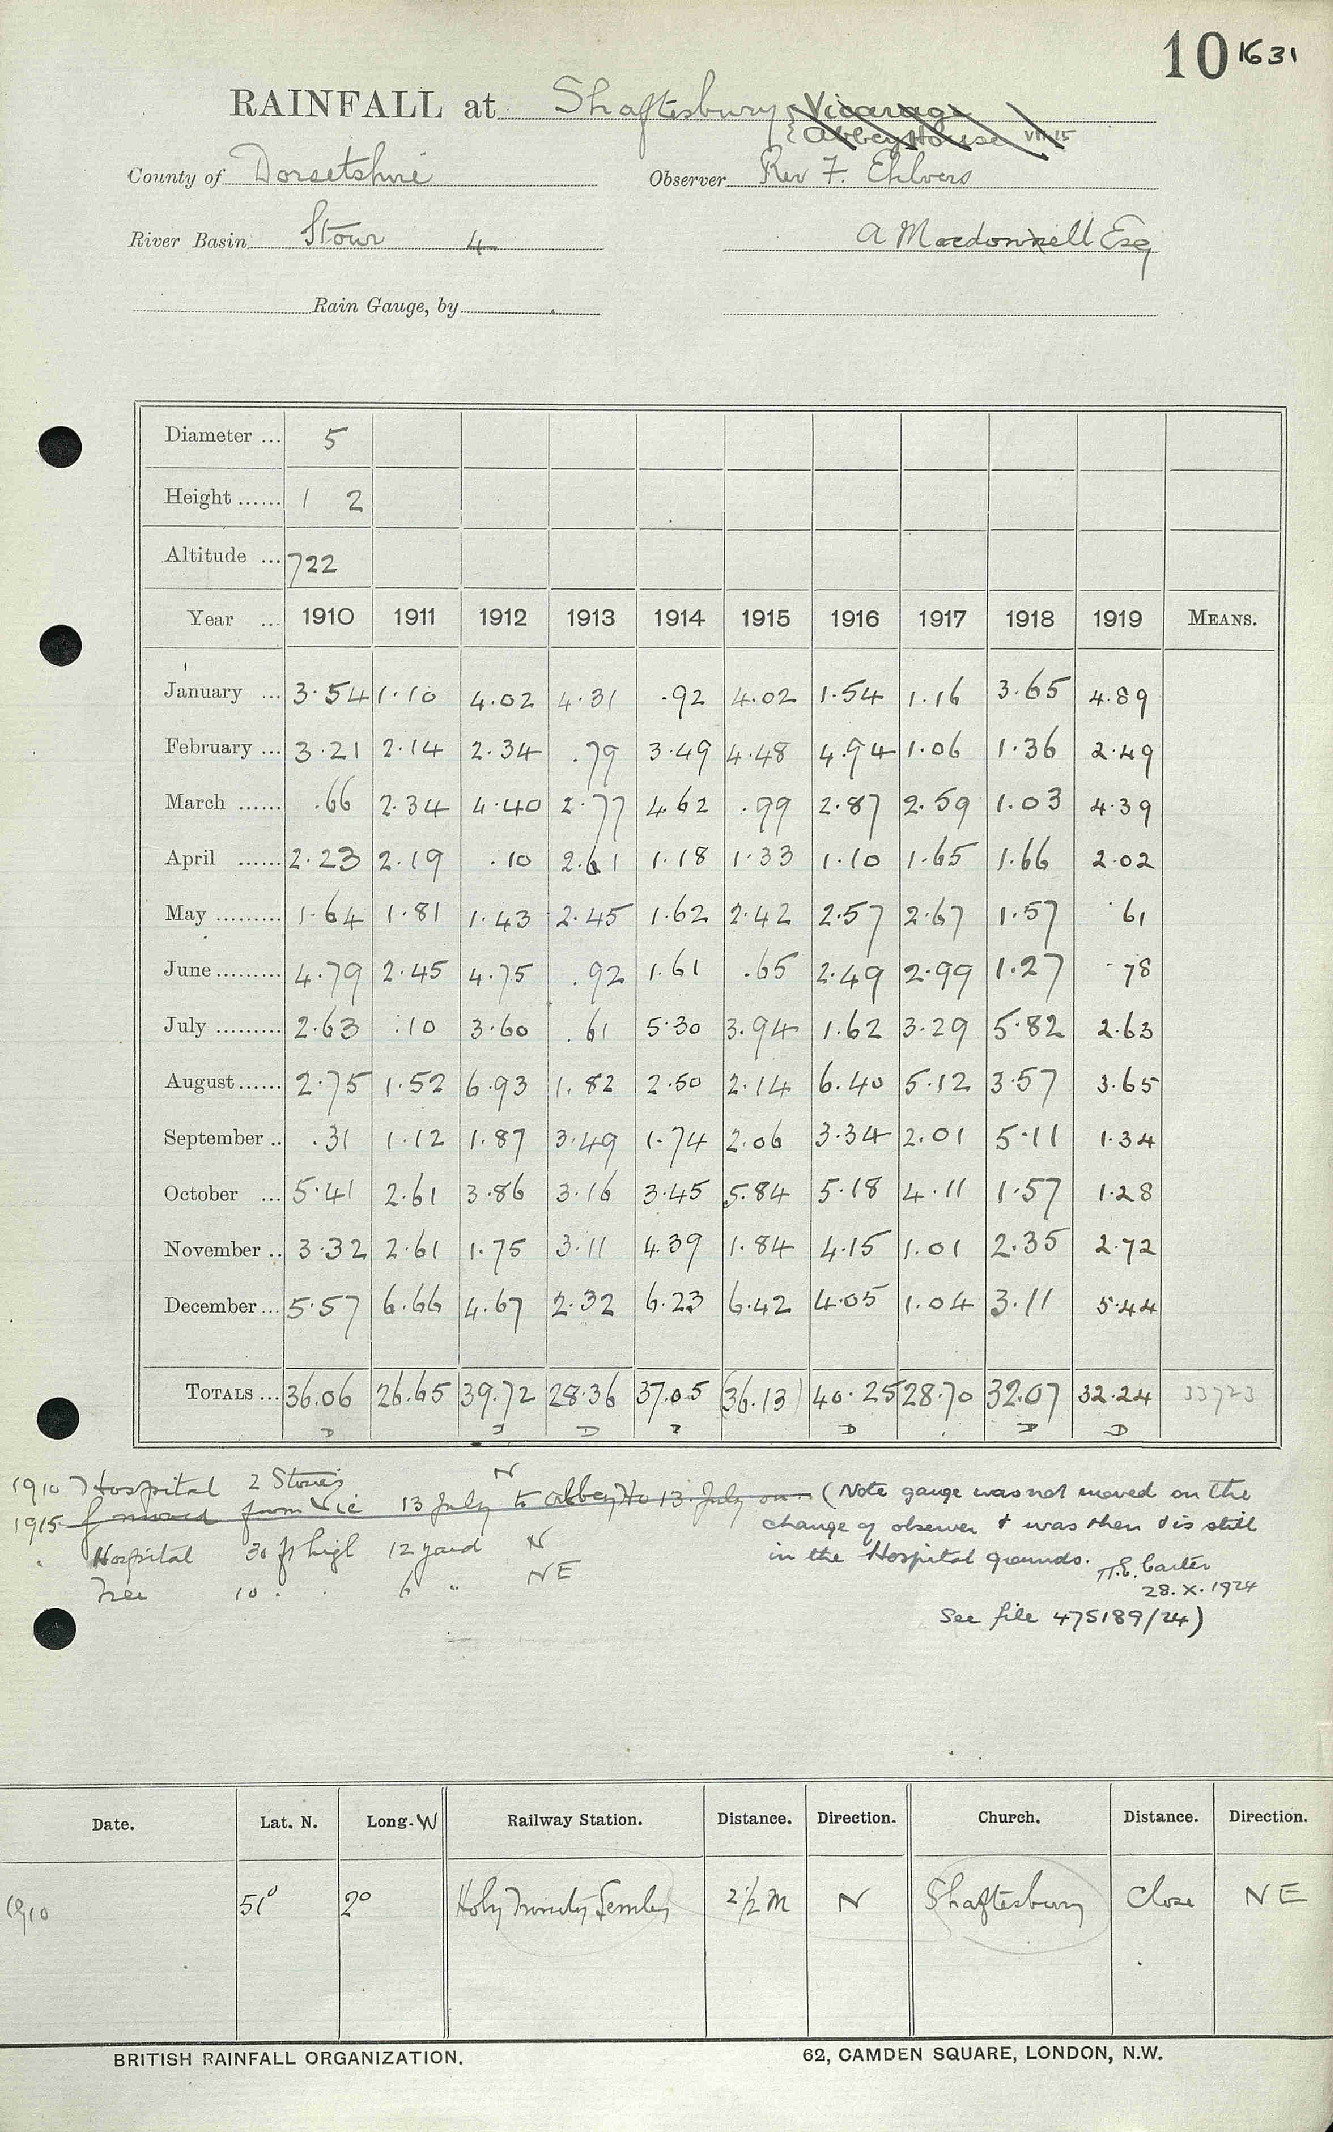 10 1631
RAINFALL at Shaftesbury { Vicarage
{ Abbey House VII 15
County of Dorsetshire Observer Rev F. Ehlvers
River Basin Stour 4 A Macdonnell Esq
Rain Gauge, by
Diameter ... 5
Height ...... 1 2
Altitude ... 722
Year ... 1910 1911 1912 1913 1914 1915 1916 1917 1918 1919 MEANS.
January ... 3.54 1.10 4.02 4.31 .92 4.02 1.54 1.16 3.65 4.89
February ... 3.21 2.14 2.34 .79 3.49 4.48 4.94 1.06 1.36 2.49
March ...... .66 2.34 4.40 2.77 4.62 .99 2.87 2.59 1.03 4.39
April ...... 2.23 2.19 .10 2.61 1.18 1.33 1.10 1.65 1.66 2.02
May ......... 1.64 1.81 1.43 2.45 1.62 2.42 2.57 2.67 1.57 .61
June ......... 4.79 2.45 4.75 .92 1.61 .65 2.49 2.99 1.27 .78
July ......... 2.63 .10 3.60 .61 5.30 3.94 1.62 3.29 5.82 2.63
August ...... 2.75 1.52 6.93 1.82 2.50 2.14 6.40 5.12 3.57 3.65
September .. .31 1.12 1.87 3.49 1.74 2.06 3.34 2.01 5.11 1.34
October ... 5.41 2.61 3.86 3.16 3.45 5.84 5.18 4.11 1.57 1.28
November .. 3.32 2.61 1.75 3.11 4.39 1.84 4.15 1.01 2.35 2.72
December ... 5.57 6.66 4.67 2.32 6.23 6.42 4.05 1.04 3.11 5.44
TOTALS ... 36.06 26.65 39.72 28.36 37.05 (36.13) 40.25 28.70 32.07 32.24 33723
1910 Hospital 2 Stories N
1915 moved from Vic 13 July to Abbey Ho 13 July on (Note gauge was not moved on the
change of observer & was then & is still
Hospital 30 ft high 12 yard N
in the Hospital grounds.
Tree 10 " 6 " NE
Carter
28.X.1924
See file 475189/24)
Date. Lat. N. Long. W Railway Station. Distance. Direction. Church. Distance. Direction.
1910 51° 2° Holy Trinity Semley 2½ M N Shaftesbury Close NE
BRITISH RAINFALL ORGANIZATION. 62, CAMDEN SQUARE, LONDON, N.W.